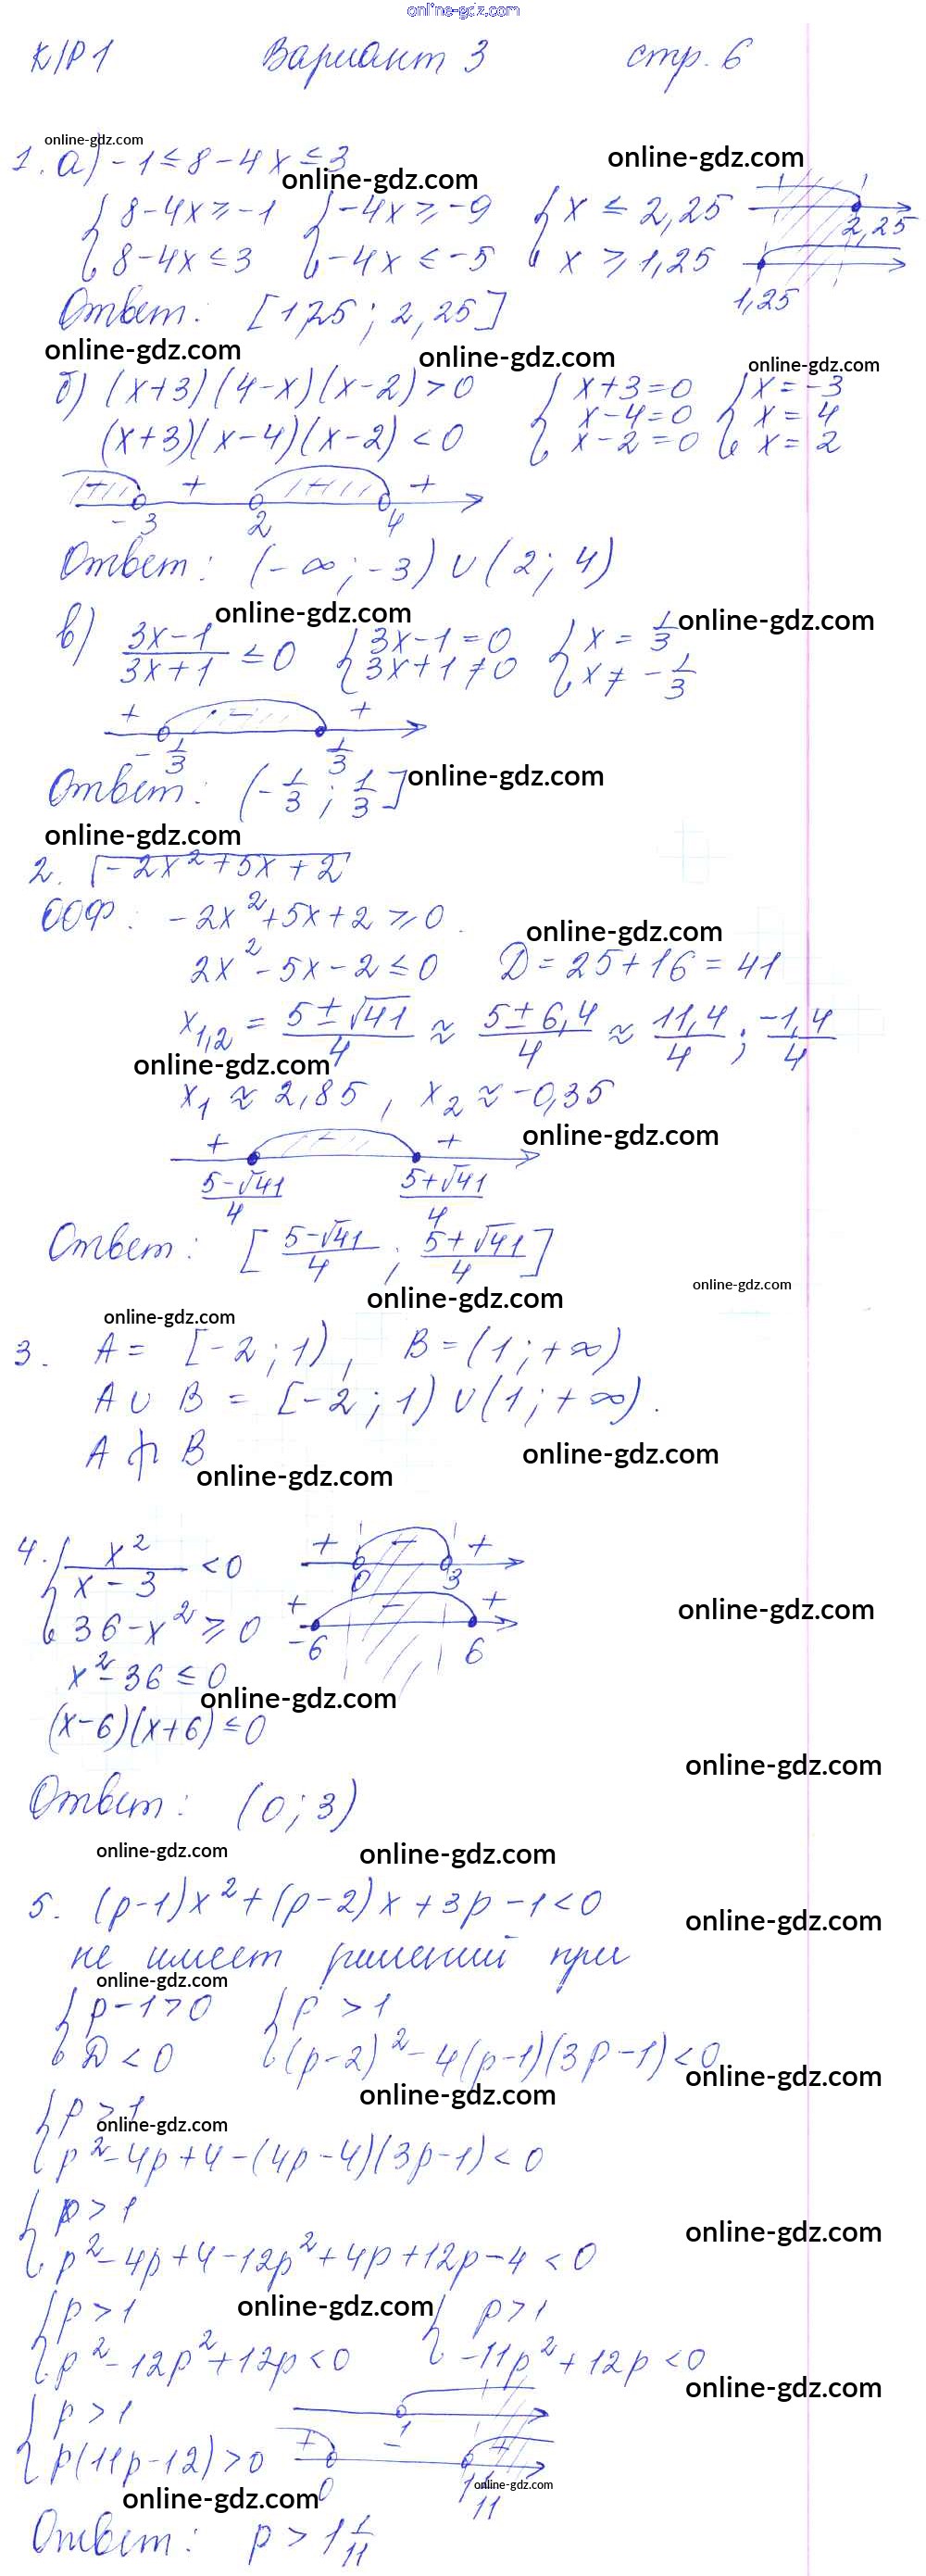 online-gdz.com
К/Р 1 Вариант 3 стр. 6
online-gdz.com
1. а) -1 ≤ 8 - 4x ≤ 3
online-gdz.com
online-gdz.com
{ 8-4x ≥ -1 { -4x ≥ -9 { x ≤ 2,25
{ 8-4x ≤ 3 { -4x ≤ -5 { x ≥ 1,25
2,25
1,25
Ответ: [1,25 ; 2,25]
online-gdz.com
online-gdz.com
online-gdz.com
б) (x+3)(4-x)(x-2) > 0 { x+3=0 { x=-3
x-4=0 x=4
(x+3)(x-4)(x-2) < 0 x-2=0 x=2
- + - +
-3 2 4
Ответ: (-∞; -3) ∪ (2; 4)
online-gdz.com
online-gdz.com
в) (3x-1)/(3x+1) ≤ 0 { 3x-1=0 { x = 1/3
{ 3x+1≠0 { x ≠ -1/3
+ - +
-1/3 1/3
Ответ: (-1/3 ; 1/3]
online-gdz.com
online-gdz.com
2. √(-2x²+5x+2)
ООФ: -2x²+5x+2 ≥ 0.
online-gdz.com
2x²-5x-2 ≤ 0 D = 25+16 = 41
x1,2 = (5±√41)/4 ≈ (5±6,4)/4 ≈ 11,4/4 ; -1,4/4
online-gdz.com
x1 ≈ 2,85 , x2 ≈ -0,35
online-gdz.com
+ - +
(5-√41)/4 (5+√41)/4
Ответ: [(5-√41)/4 ; (5+√41)/4]
online-gdz.com
online-gdz.com
online-gdz.com
3. A = [-2 ; 1), B = (1 ; +∞)
A ∪ B = [-2 ; 1) ∪ (1 ; +∞).
online-gdz.com
online-gdz.com
4. { x²/(x-3) < 0 + - +
0 3
{ 36-x² ≥ 0 + - +
-6 6
online-gdz.com
x²-36 ≤ 0
online-gdz.com
(x-6)(x+6) ≤ 0
online-gdz.com
Ответ: (0; 3)
online-gdz.com
online-gdz.com
5. (p-1)x² + (p-2)x + 3p - 1 < 0
online-gdz.com
не имеет решений при
online-gdz.com
{ p-1>0 { p > 1
{ D < 0 { (p-2)² - 4(p-1)(3p-1) < 0
online-gdz.com
online-gdz.com
{ p > 1
online-gdz.com
{ p²-4p+4-(4p-4)(3p-1) < 0
{ p > 1
online-gdz.com
{ p²-4p+4-12p²+4p+12p-4 < 0
online-gdz.com
{ p > 1 { p > 1
{ p²-12p²+12p < 0 { -11p²+12p < 0
online-gdz.com
{ p > 1
1
{ p(11p-12) > 0 + - +
0 1 1/11
online-gdz.com
online-gdz.com
Ответ: p > 1 1/11